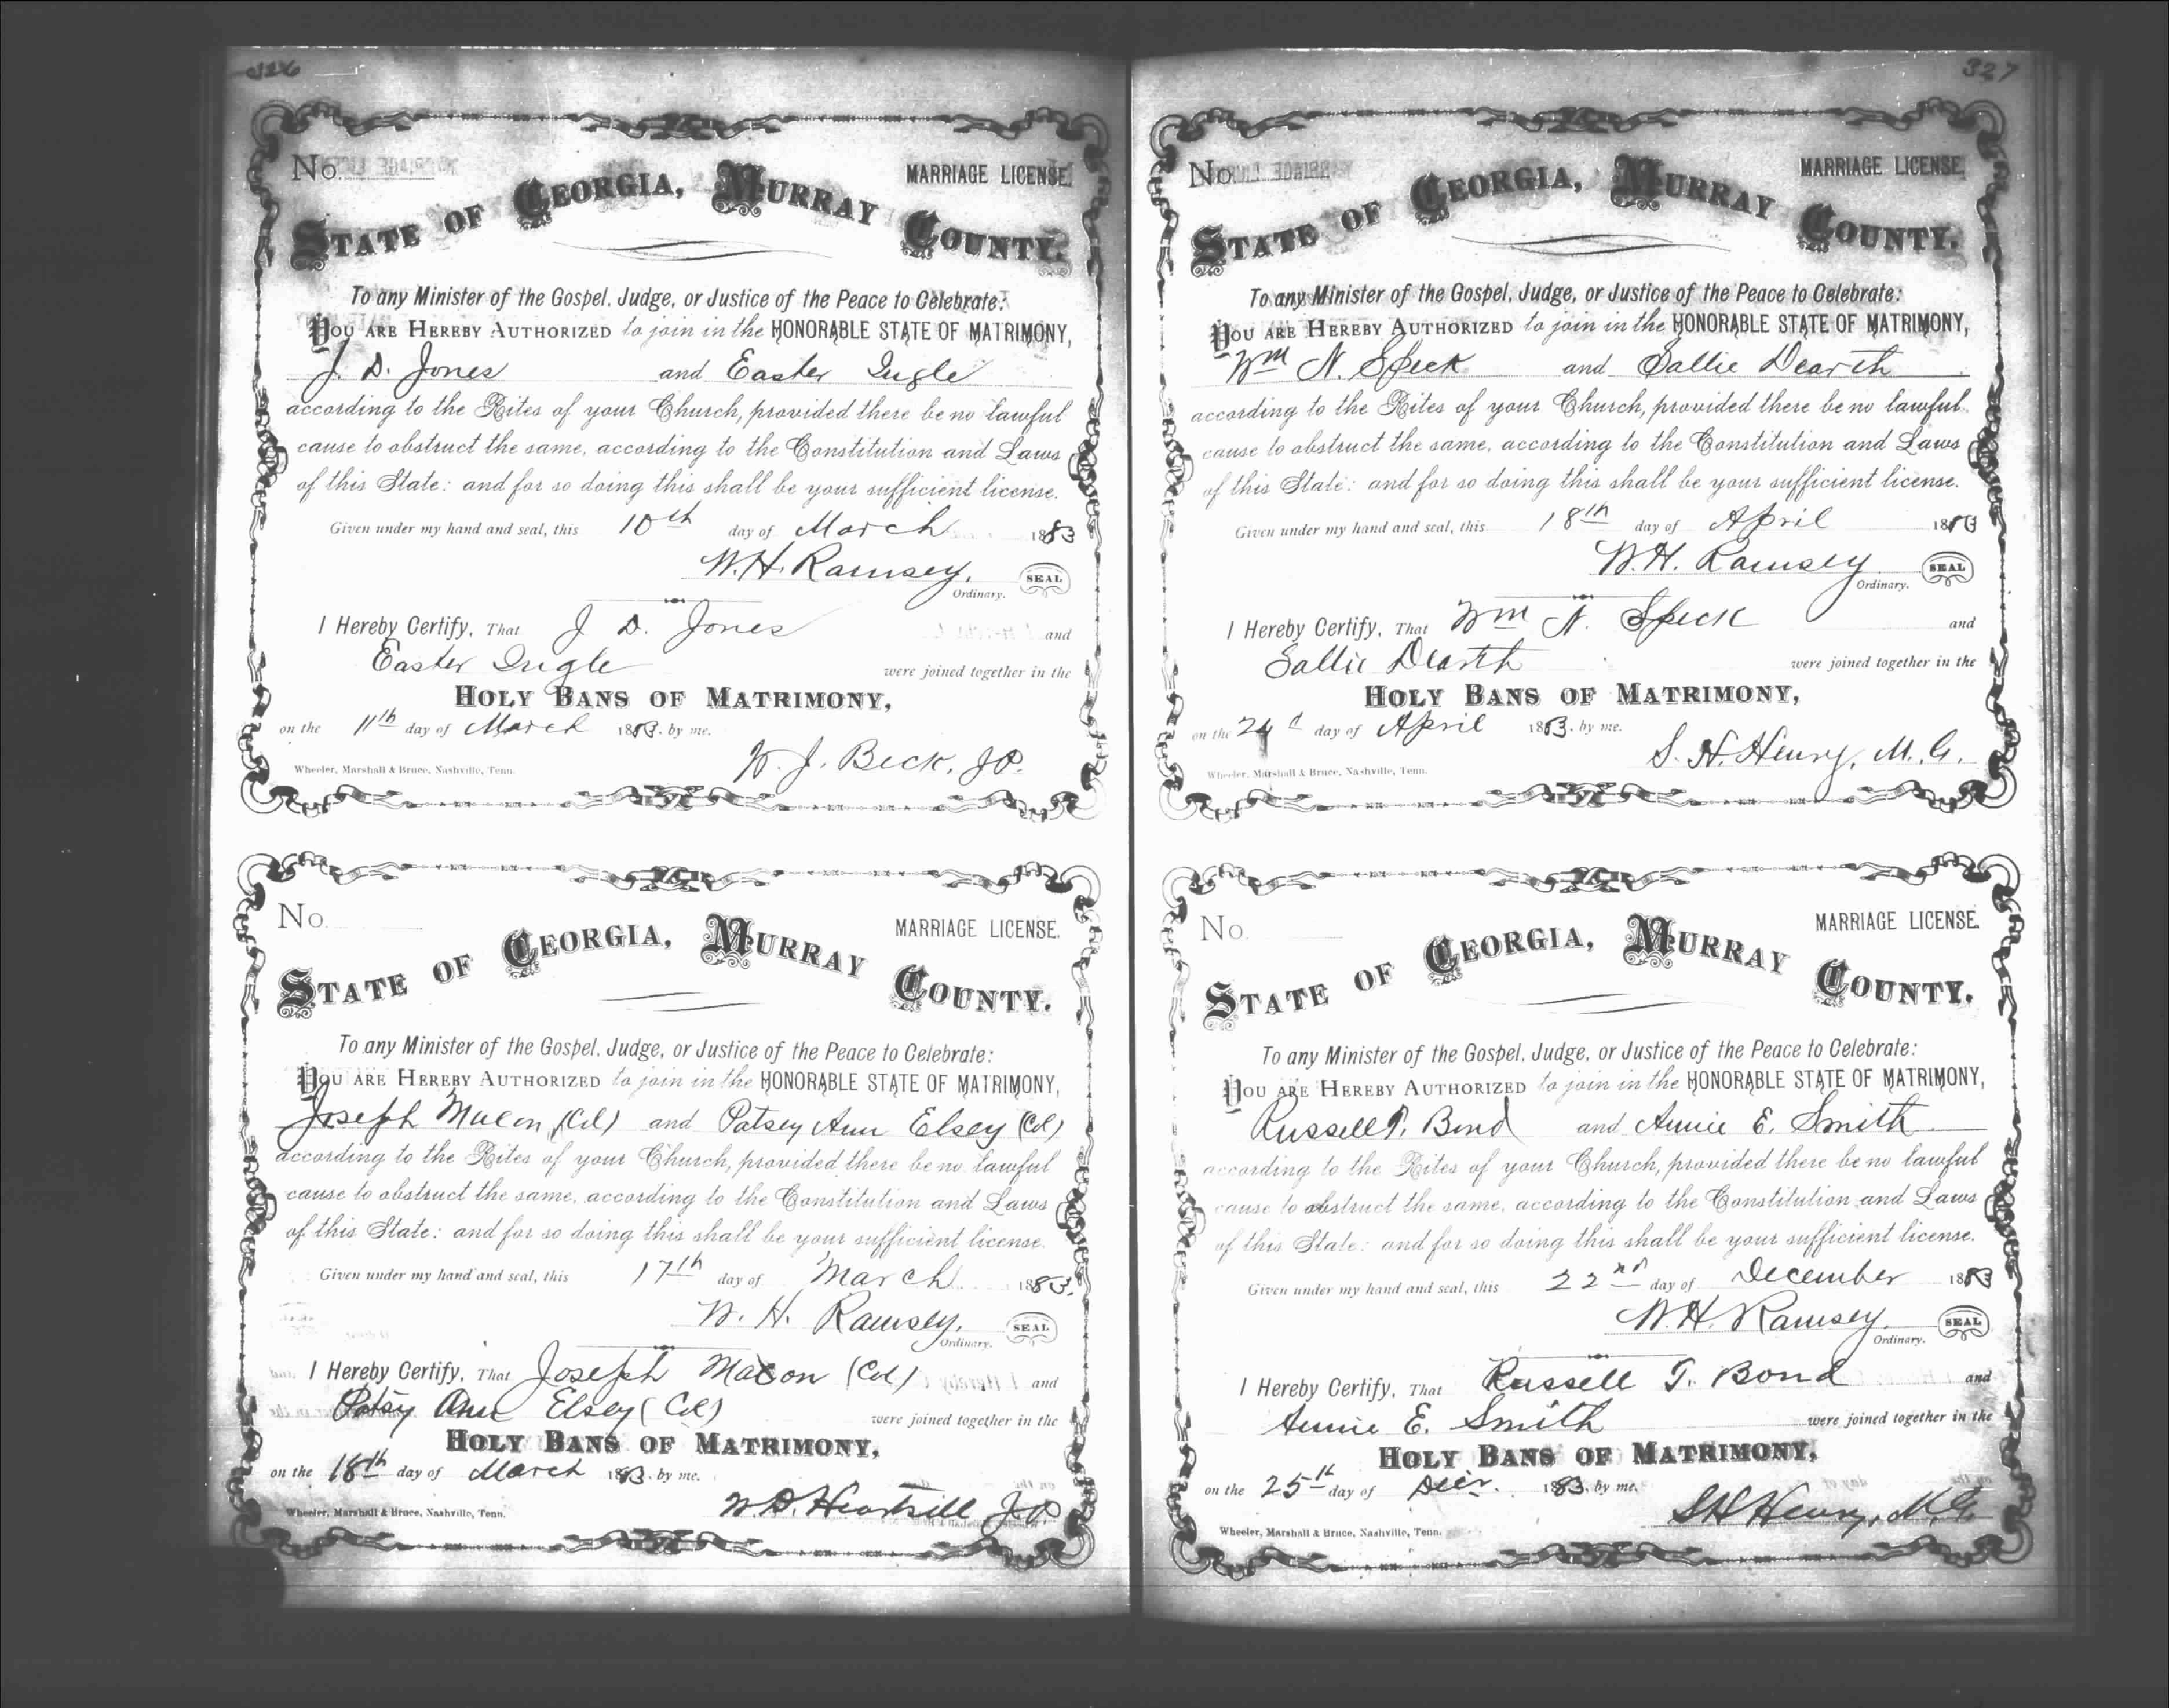 326
No. MARRIAGE LICENSE.
STATE OF GEORGIA, MURRAY COUNTY.
To any Minister of the Gospel, Judge, or Justice of the Peace to Celebrate:
YOU ARE HEREBY AUTHORIZED to join in the HONORABLE STATE OF MATRIMONY,
J. D. Jones and Easter Ingle
according to the Rites of your Church, provided there be no lawful
cause to obstruct the same, according to the Constitution and Laws
of this State: and for so doing this shall be your sufficient license.
Given under my hand and seal, this 10th day of March 1883
W. H. Ramsey, SEAL
Ordinary.
I Hereby Certify, That J D. Jones and
Easter Ingle were joined together in the
HOLY BANS OF MATRIMONY,
on the 11th day of March 1883. by me.
W. J. Beck, JP.
Wheeler, Marshall & Bruce, Nashville, Tenn.
No. MARRIAGE LICENSE.
STATE OF GEORGIA, MURRAY COUNTY.
To any Minister of the Gospel, Judge, or Justice of the Peace to Celebrate:
YOU ARE HEREBY AUTHORIZED to join in the HONORABLE STATE OF MATRIMONY,
Joseph Macon (Col) and Patsey Ann Elsey (Col)
according to the Rites of your Church, provided there be no lawful
cause to obstruct the same, according to the Constitution and Laws
of this State: and for so doing this shall be your sufficient license.
Given under my hand and seal, this 17th day of March 1883.
W. H. Ramsey, SEAL
Ordinary.
I Hereby Certify, That Joseph Macon (Col) and
Patsy Ann Elsey (Col) were joined together in the
HOLY BANS OF MATRIMONY,
on the 18th day of March 1883. by me.
W. D. Heartsill JP.
Wheeler, Marshall & Bruce, Nashville, Tenn.
327
No. MARRIAGE LICENSE.
STATE OF GEORGIA, MURRAY COUNTY.
To any Minister of the Gospel, Judge, or Justice of the Peace to Celebrate:
YOU ARE HEREBY AUTHORIZED to join in the HONORABLE STATE OF MATRIMONY,
Wm N. Speck and Sallie Dearth
according to the Rites of your Church, provided there be no lawful
cause to obstruct the same, according to the Constitution and Laws
of this State: and for so doing this shall be your sufficient license.
Given under my hand and seal, this 18th day of April 1883
W. H. Ramsey SEAL
Ordinary.
I Hereby Certify, That Wm N. Speck and
Sallie Dearth were joined together in the
HOLY BANS OF MATRIMONY,
on the 24d day of April 1883. by me.
S. H. Henry, M. G.
Wheeler, Marshall & Bruce, Nashville, Tenn.
No. MARRIAGE LICENSE.
STATE OF GEORGIA, MURRAY COUNTY.
To any Minister of the Gospel, Judge, or Justice of the Peace to Celebrate:
YOU ARE HEREBY AUTHORIZED to join in the HONORABLE STATE OF MATRIMONY,
Russell T. Bond and Annie E. Smith
according to the Rites of your Church, provided there be no lawful
cause to obstruct the same, according to the Constitution and Laws
of this State: and for so doing this shall be your sufficient license.
Given under my hand and seal, this 22nd day of December 1883
W. H. Ramsey. SEAL
Ordinary.
I Hereby Certify, That Russell T. Bond and
Annie E. Smith were joined together in the
HOLY BANS OF MATRIMONY,
on the 25th day of Decr. 1883. by me.
S H Henry, M. G.
Wheeler, Marshall & Bruce, Nashville, Tenn.